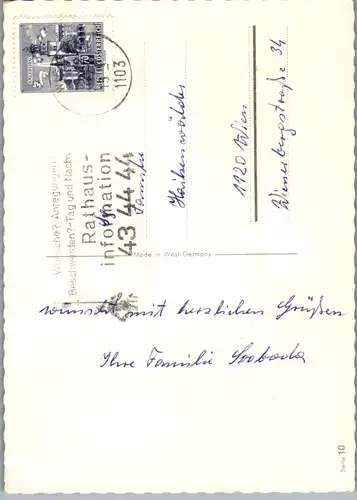 1103
Wünsche? Anregungen
Beschwerden?-Tag und Nacht
Rathaus-
information
43 44 44
Familie
1120 Wien
Wienerbergstraße 34
Made in West-Germany
wünscht mit herzlichen Grüßen
Ihre Familie Svoboda
Serie 10